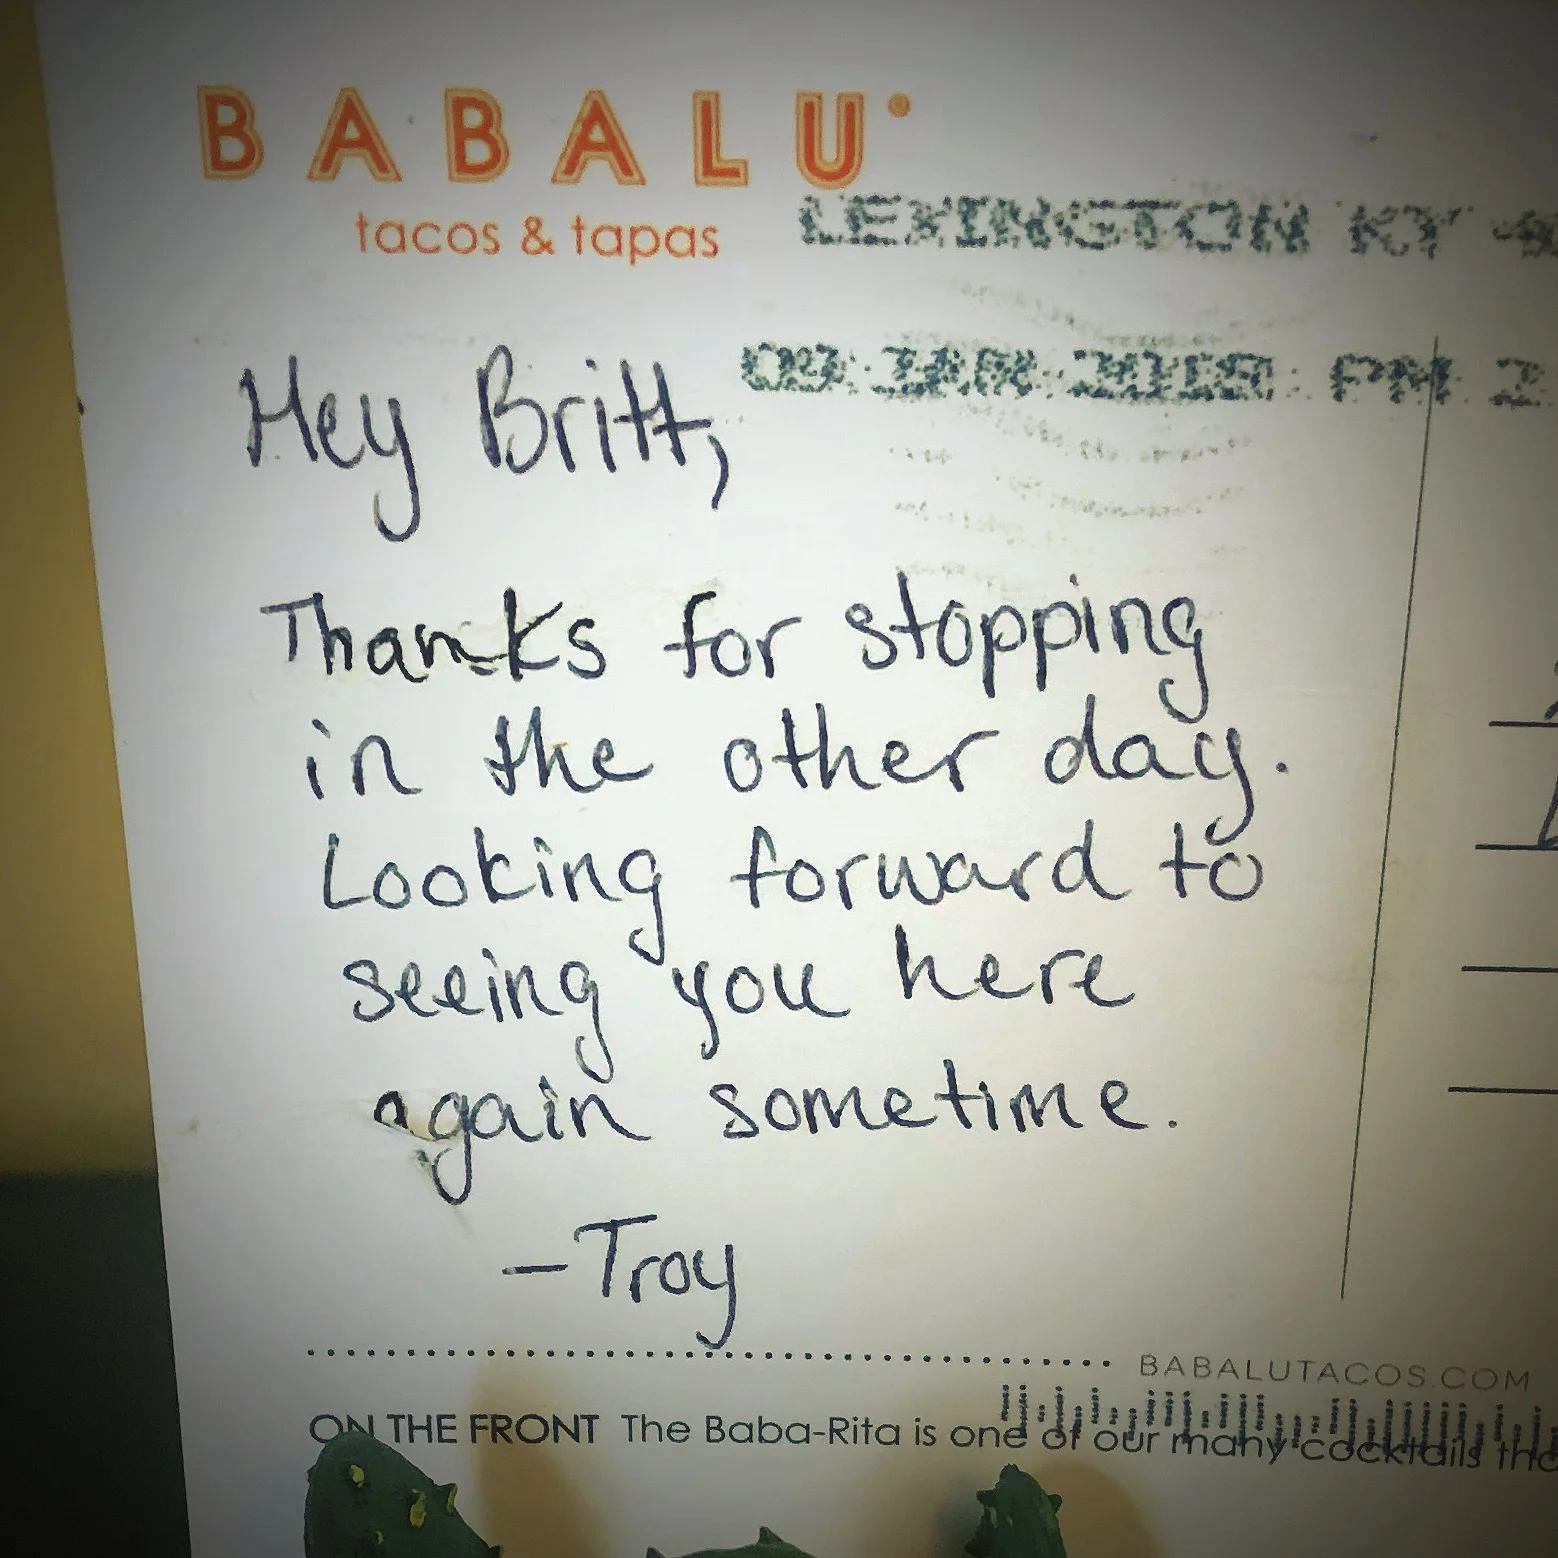 BABALU
tacos & tapas
LEXINGTON KY
09 JAN 2018 PM
Hey Britt,
Thanks for stopping
in the other day.
Looking forward to
seeing you here
again sometime.
-Troy
BABALUTACOS.COM
ON THE FRONT The Baba-Rita is one of our many cocktails